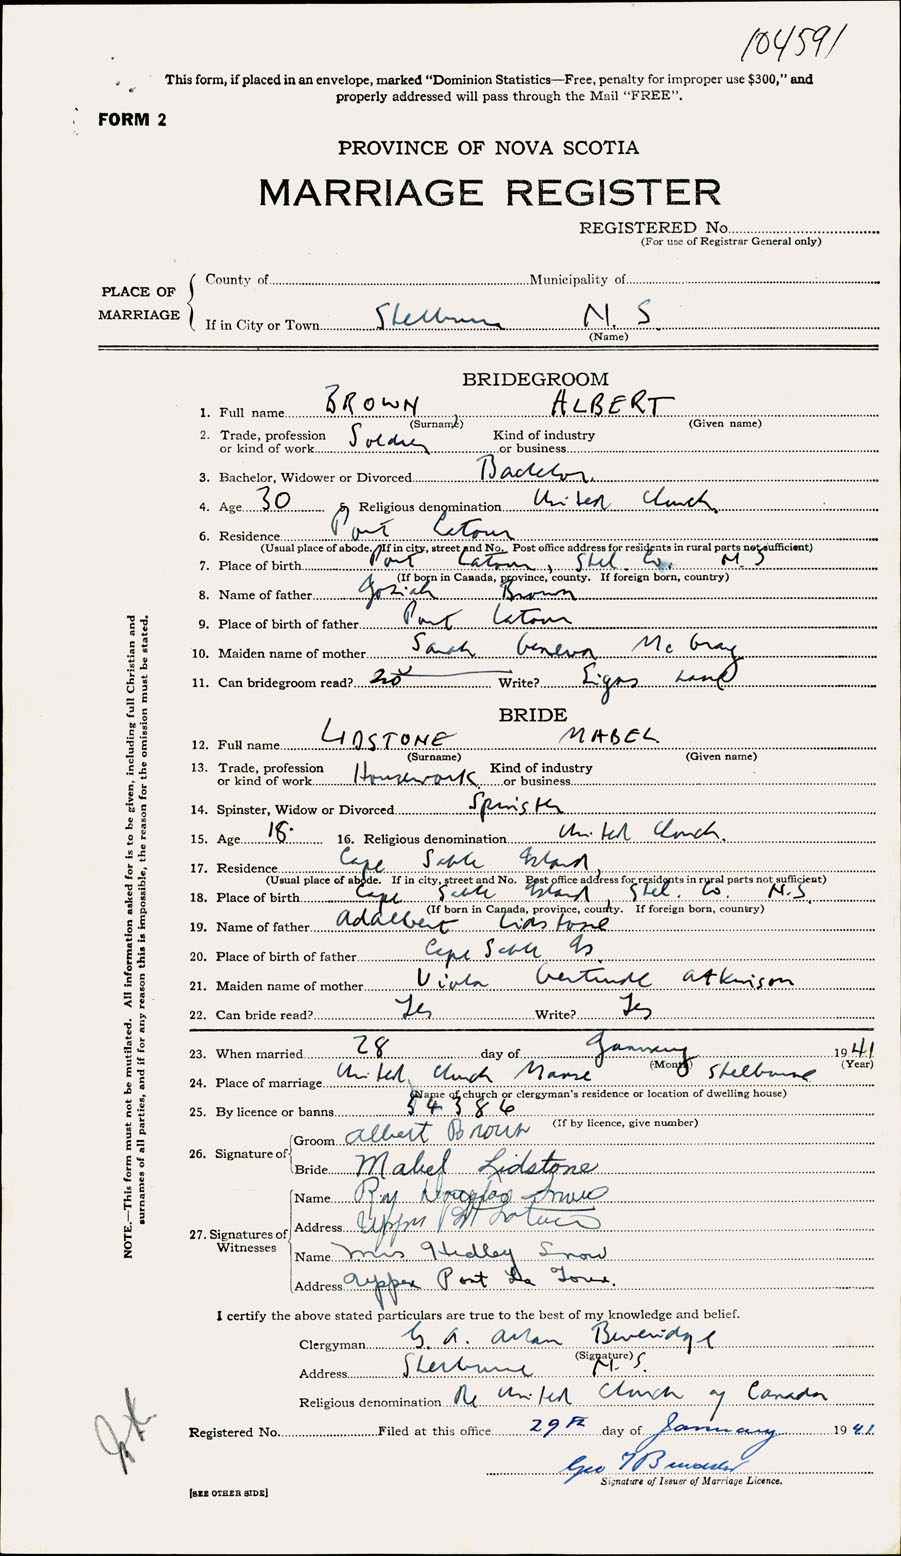 104591
This form, if placed in an envelope, marked “Dominion Statistics—Free, penalty for improper use $300,” and
properly addressed will pass through the Mail “FREE”.
FORM 2
PROVINCE OF NOVA SCOTIA
MARRIAGE REGISTER
REGISTERED No.
(For use of Registrar General only)
PLACE OF MARRIAGE
County of Municipality of
If in City or Town Shelburne N. S.
(Name)
BRIDEGROOM
1. Full name BROWN ALBERT
(Surname) (Given name)
2. Trade, profession or kind of work Soldier Kind of industry or business
3. Bachelor, Widower or Divorced Bachelor.
4. Age 30 5. Religious denomination United Church
6. Residence Port Latour
(Usual place of abode. If in city, street and No. Post office address for residents in rural parts not sufficient)
7. Place of birth Port Latour, Shel. Co. N. S
(If born in Canada, province, county. If foreign born, country)
8. Name of father Josiah Brown
9. Place of birth of father Port Latour
10. Maiden name of mother Sarah Geneva McGray
11. Can bridegroom read? no Write? Signs name
BRIDE
12. Full name LIDSTONE MABEL
(Surname) (Given name)
13. Trade, profession or kind of work Housework Kind of industry or business
14. Spinster, Widow or Divorced Spinster
15. Age 18 16. Religious denomination United Church.
17. Residence Cape Sable Island
(Usual place of abode. If in city, street and No. Post office address for residents in rural parts not sufficient)
18. Place of birth Cape Sable Island, Shel. Co. N. S.
(If born in Canada, province, county. If foreign born, country)
19. Name of father Adalbert Lidstone
20. Place of birth of father Cape Sable Is.
21. Maiden name of mother Viola Gertrude Atkinson
22. Can bride read? Yes Write? Yes
23. When married 28 day of January 1941
(Month) (Year)
24. Place of marriage United Church Manse Shelburne
(Name of church or clergyman's residence or location of dwelling house)
25. By licence or banns 54386
(If by licence, give number)
26. Signature of Groom Albert Brown
Bride Mabel Lidstone
27. Signatures of Witnesses
Name Douglas Snow
Address Upper Port Latour
Name Mrs Hedley Snow
Address Upper Port La Tour.
I certify the above stated particulars are true to the best of my knowledge and belief.
Clergyman G. A. Allan Beveridge
(Signature)
Address Shelburne N. S.
Religious denomination The United Church of Canada
Registered No. Filed at this office 29th day of January 1941.
Geo
Signature of Issuer of Marriage Licence.
[SEE OTHER SIDE]
NOTE.—This form must not be mutilated. All information asked for is to be given, including full Christian and
surnames of all parties, and if for any reason this is impossible, the reason for the omission must be stated.